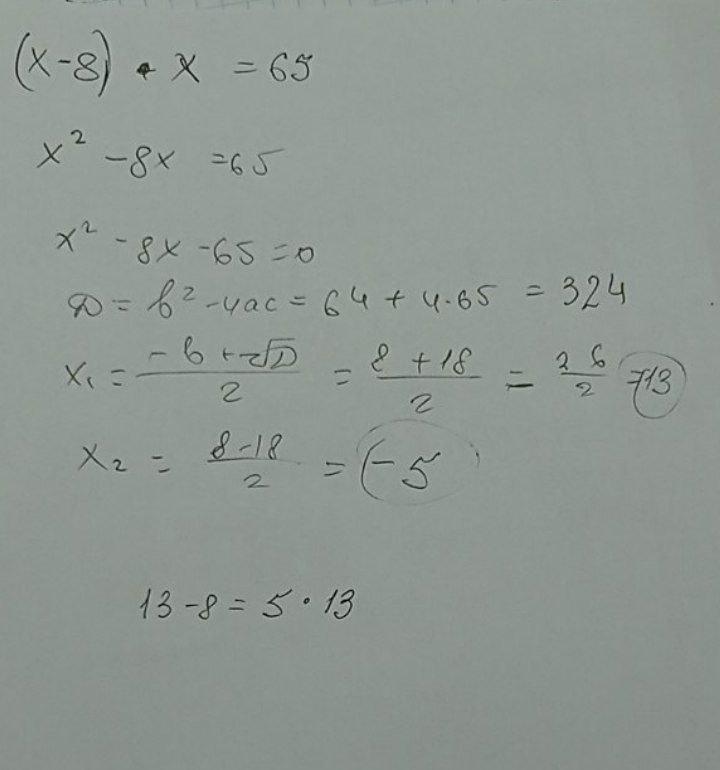 (x-8) • x = 65
x² - 8x = 65
x² - 8x - 65 = 0
D = b² - 4ac = 64 + 4·65 = 324
x₁ = (-b + √D)/2 = (8 + 18)/2 = 26/2 = 13
x₂ = (8 - 18)/2 = -5
13 - 8 = 5 · 13